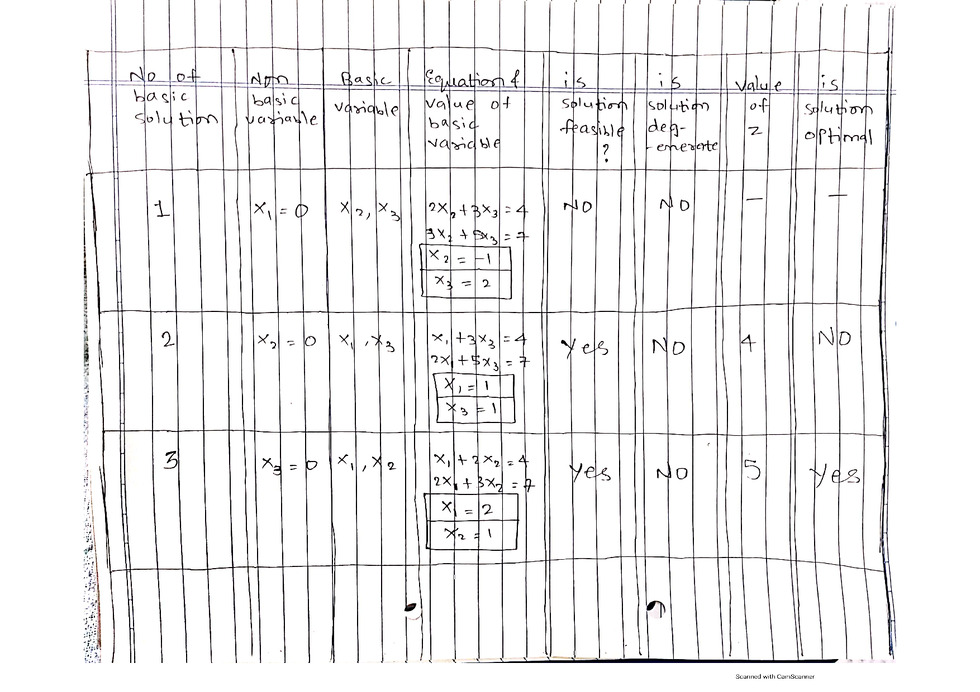 No of basic solution
Non basic variable
Basic variable
Equation & value of basic variable
is solution feasible ?
is solution deg-enerate
value of z
is solution optimal
1
x₁ = 0
x₂, x₃
2x₂ + 3x₃ = 4
3x₂ + 5x₃ = 7
x₂ = -1
x₃ = 2
NO
NO
—
—
2
x₂ = 0
x₁, x₃
x₁ + 3x₃ = 4
2x₁ + 5x₃ = 7
x₁ = 1
x₃ = 1
Yes
NO
4
NO
3
x₃ = 0
x₁, x₂
x₁ + 2x₂ = 4
2x₁ + 3x₂ = 7
x₁ = 2
x₂ = 1
Yes
NO
5
Yes
Scanned with CamScanner